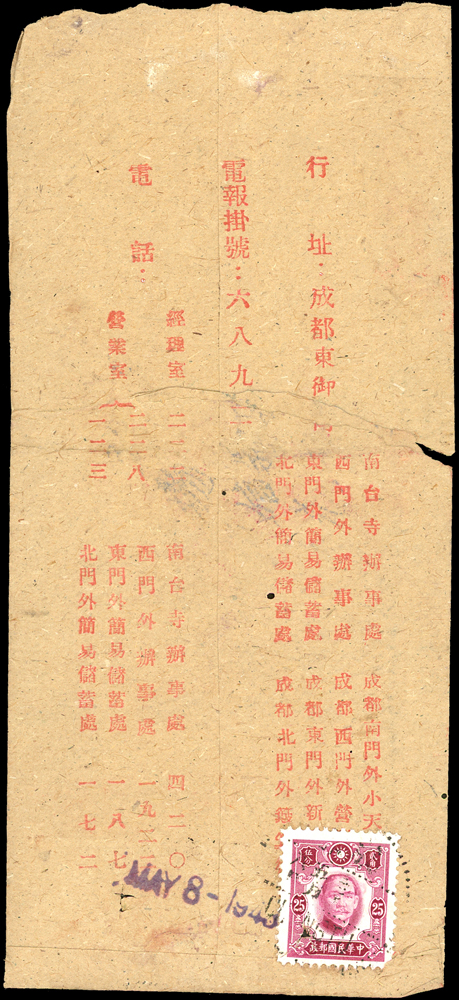 行址：成都東御
南台寺辦事處 成都南門外小天
西門外辦事處 成都西門外營
東門外簡易儲蓄處 成都東門外新
北門外簡易儲蓄處 成都北門外
電報掛號：六八九二
電話：
經理室 二一二
營業室 二二八
一二三
南台寺辦事處 四二〇
西門外辦事處 一九三二
東門外簡易儲蓄處 一八七
北門外簡易儲蓄處 一七二
MAY 8 - 194
伍分 貳角
25 25
中華民國郵政